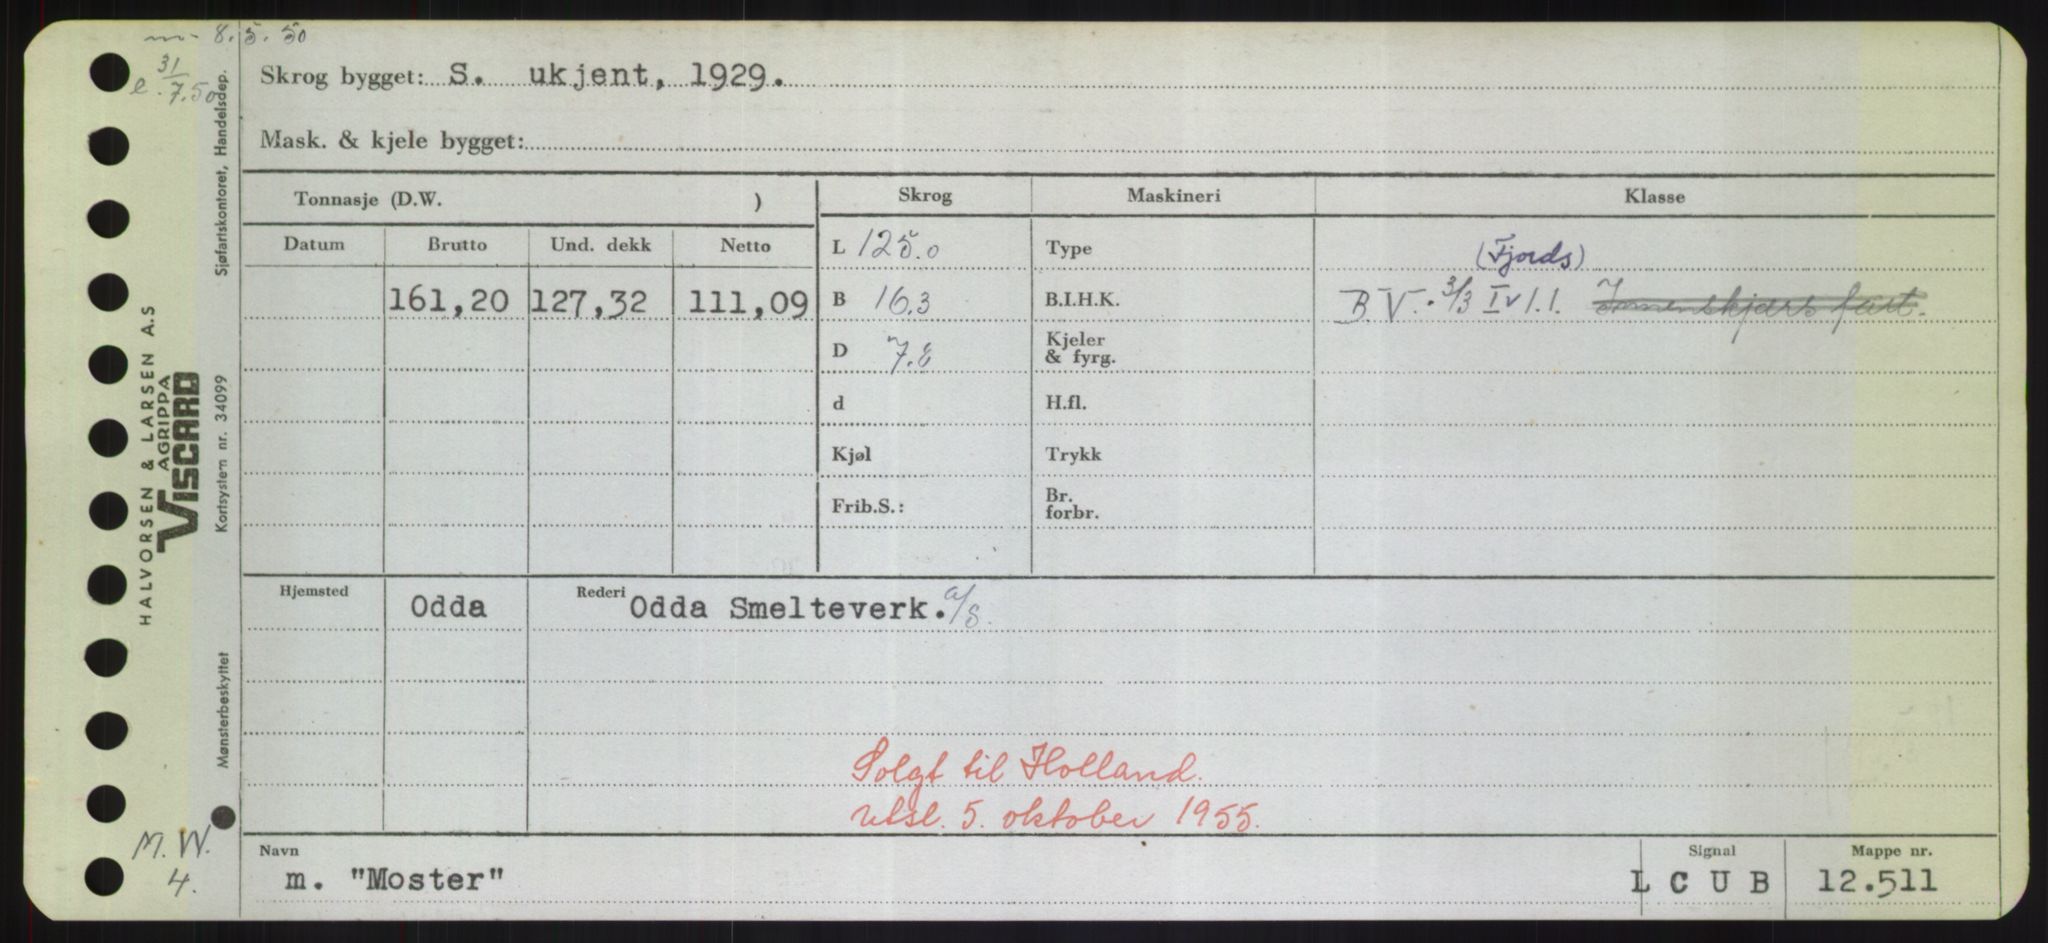 m- 8.5.50
e. 31/7.50
Skrog bygget: S. ukjent, 1929.
Mask. & kjele bygget:
Tonnasje (D.W. )
Skrog Maskineri Klasse
Datum Brutto Und. dekk Netto
L 125.0 Type (Fjords)
161,20 127,32 111,09
B 16.3 B.I.H.K. B.V. 3/3 I 1.1. Innenskjærs fart.
D Kjeler & fyrg.
d H.fl.
Kjøl Trykk
Frib.S.: Br. forbr.
Hjemsted Odda Rederi Odda Smelteverk. a/s.
Solgt til Holland.
utsl. 5. oktober 1955.
Navn Signal Mappe nr.
m. "Moster" L C U B 12.511
M.W.
4.
HALVORSEN & LARSEN A.S
AGRIPPA
VISCARD
Mønsterbeskyttet Kortsystem nr. 34099 Sjøfartskontoret, Handelsdep.